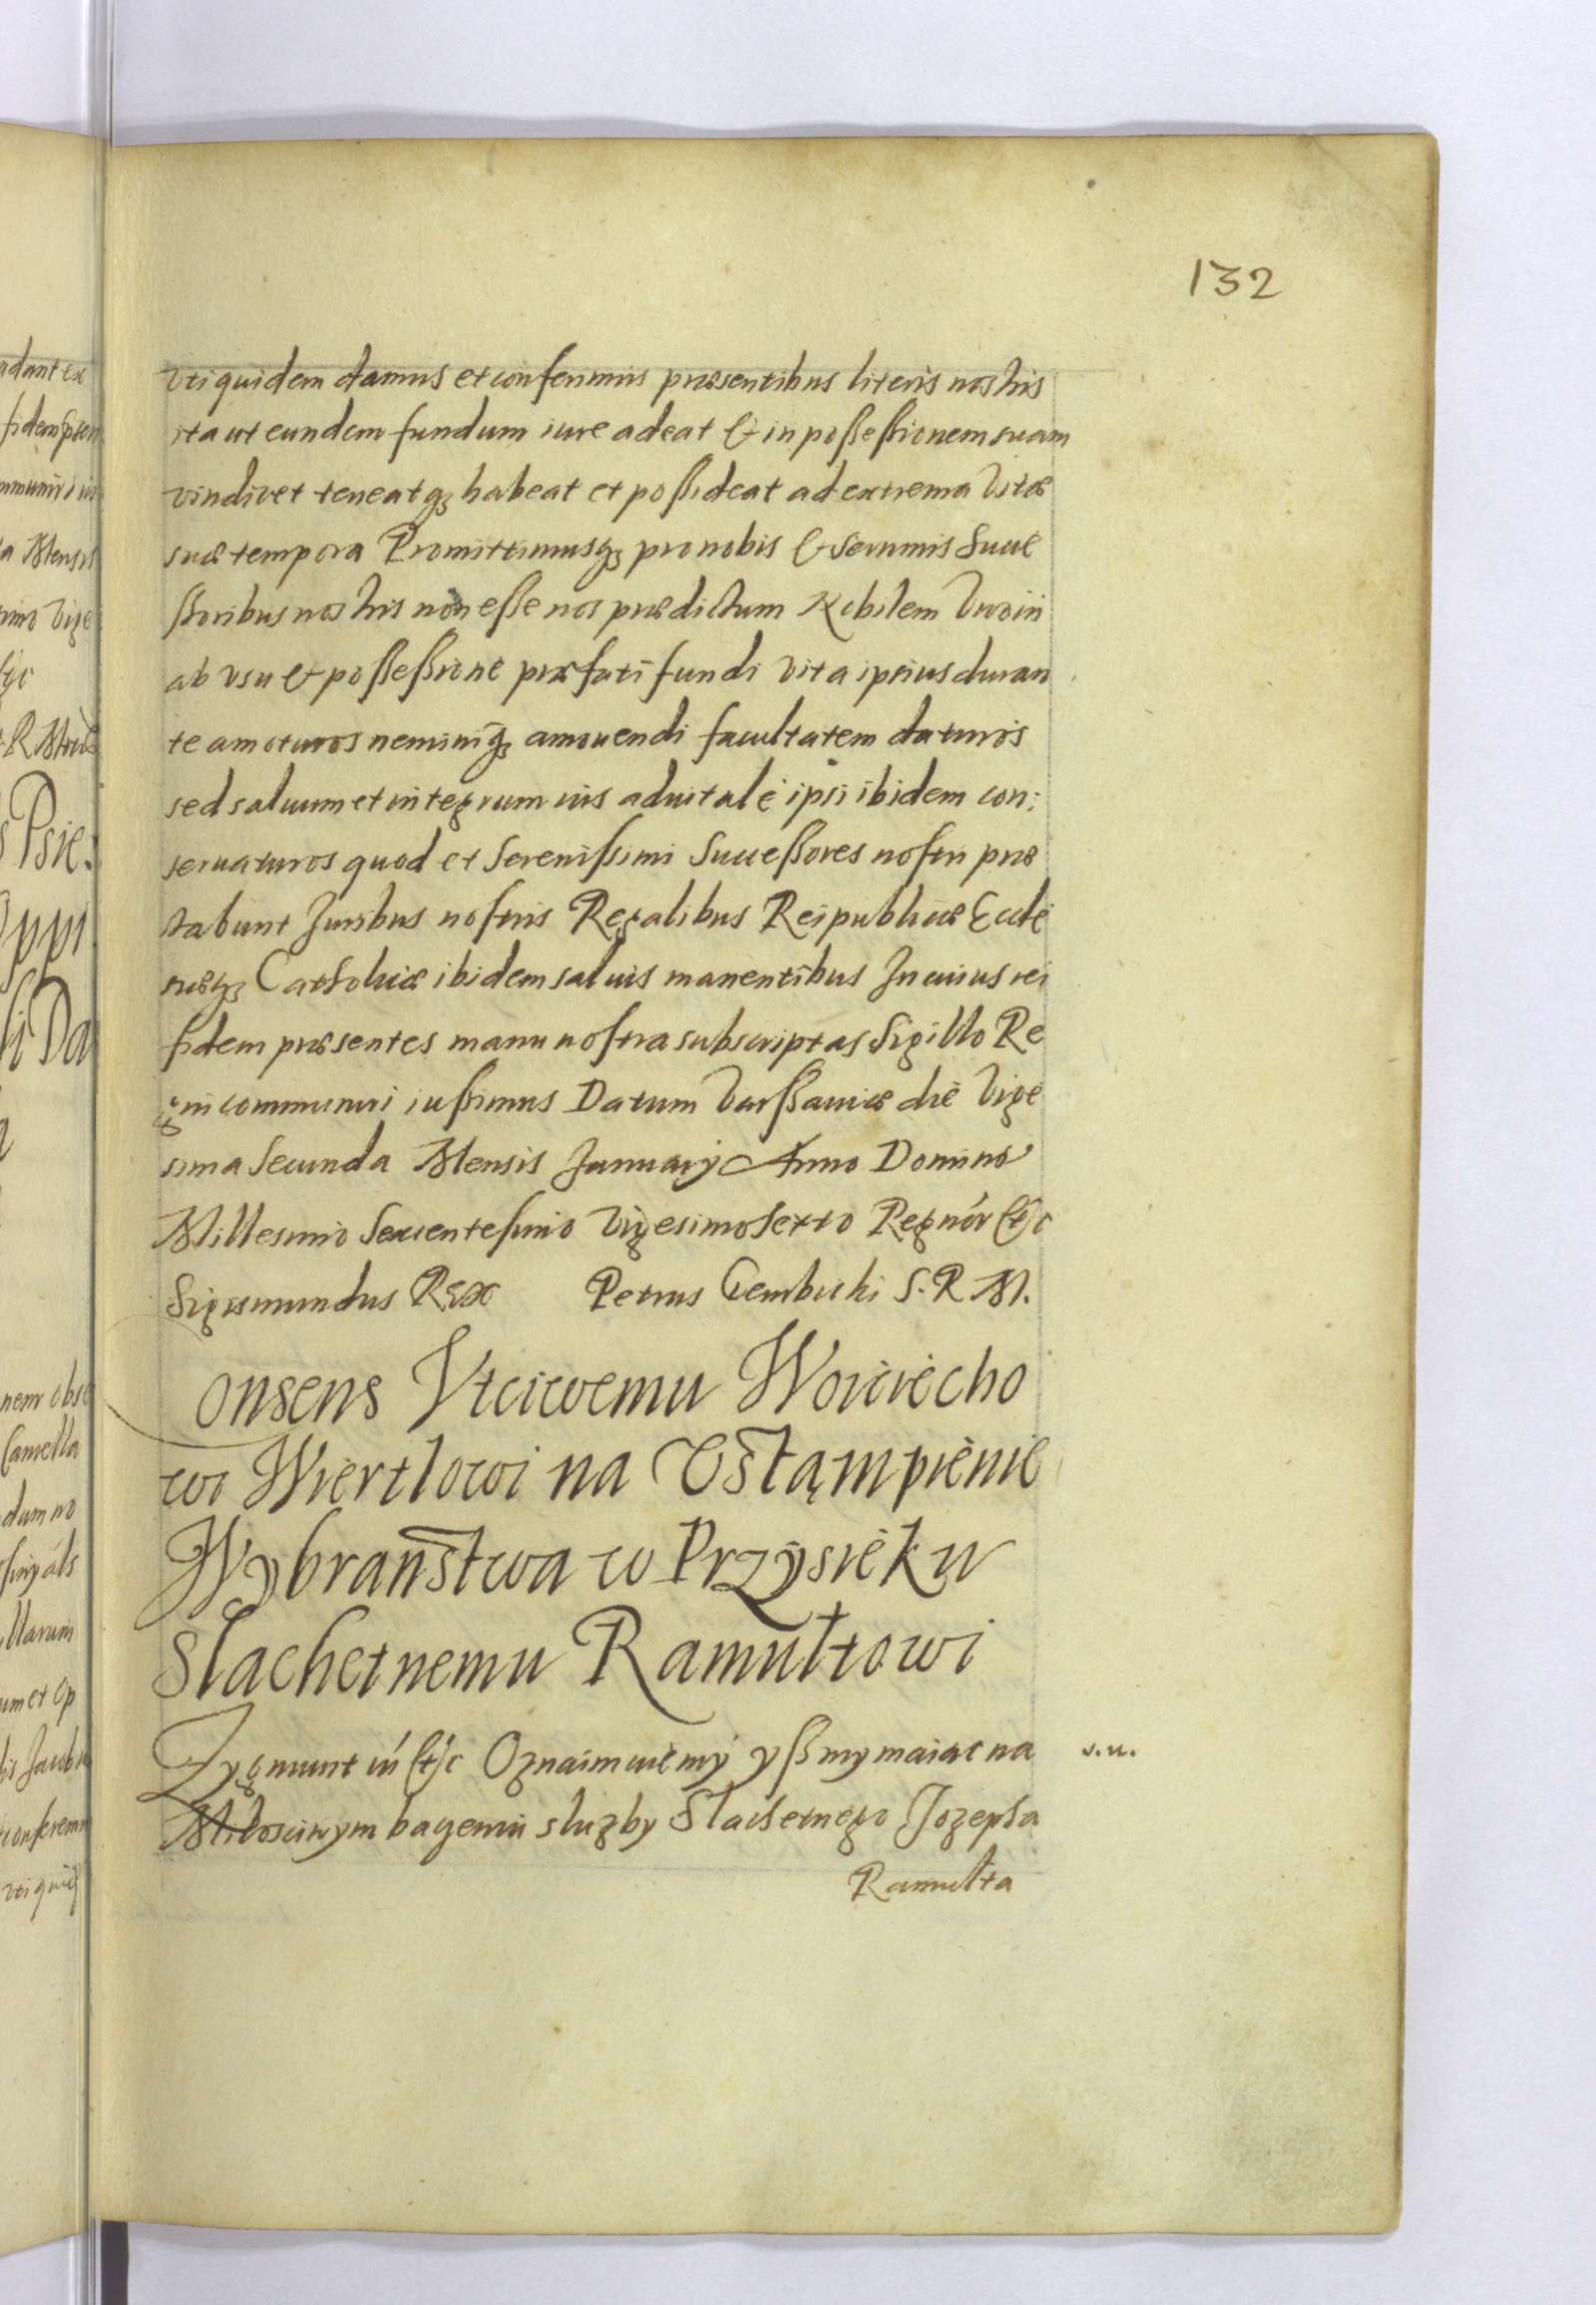 132
vti quidem damus et conferimus præsentibus literis nostris
ita ut eundem fundum iure adeat & in poßeßionem suam
vindicet teneatqꝫ habeat et poßideat ad extrema Vitæ
suæ tempora Promittimusqꝫ pro nobis & Sernmis Succe
ßoribus nostris non eße nos prædictum Nobilem
ab vsu & poßeßione præfati fundi vita ipsius duran
te amoturos neminiqꝫ amouendi facultatem daturos
sed saluum et integrum ius aduitale ipsi ibidem con:
seruaturos quod et Serenißimi Succeßores nostri præ
stabunt Juribus nostris Regalibus Reipublicæ Eccle
siæqꝫ Catholicæ ibidem saluis manentibus In cuius rei
fidem præsentes manu nostra subscriptas Sigillo Re
gni communiri iußimus Datum Varßauiæ die Vige
sima Secunda Mensis Januarij Anno Domino
Millesimo Sexcentesimo Vigesimo Sexto Regnor etc
Sigismundus Rex Petrus Gembicki S. R. M.
onsens Vtciwemu Woiciecho
wi Wiertlowi na Vstąmpienie
Wybranstwa w Przysieku
Slachetnemu Ramułtowi
Zygmunt iii etc Oznaimuiemy yß my maiac na v.u.
Miłosciwym bacżeniu słuzby Slachetnego Jozepha
Ramułta